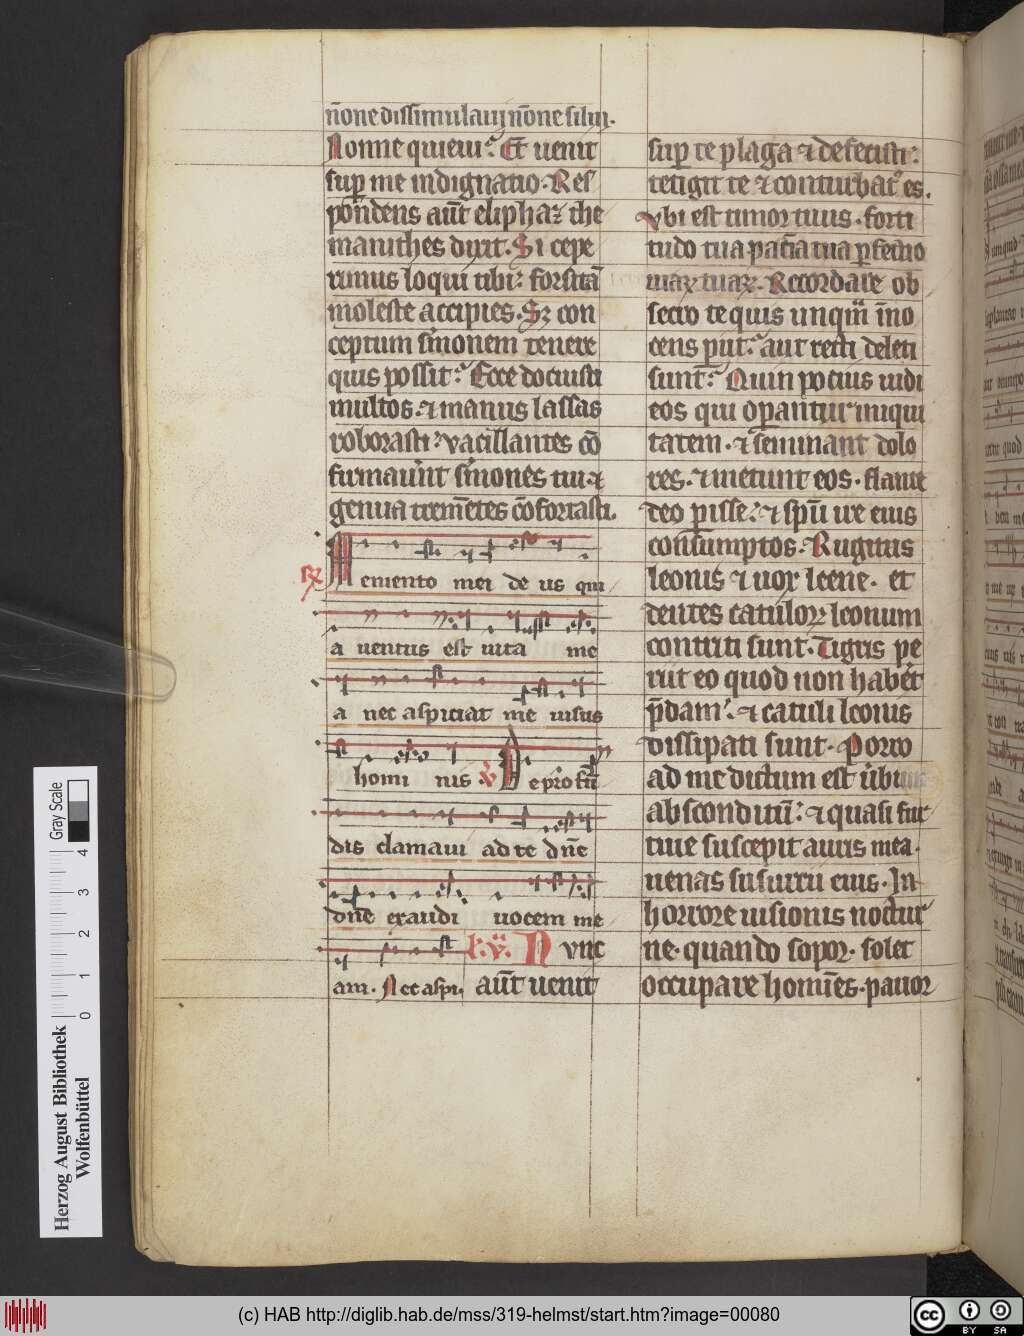 n̄one dissimulaui n̄one silui.
Nonne quieui? Et uenit
sup̱ me indignatio. Res
pondens aūt eliphaz the
manithes dixit. Si cepe
rimus loqui tibi? forsitā
moleste accipies. Sꝫ con
ceptum s̄monem tenere
quis possit? Ecce docuisti
multos. ⁊ manus lassas
roborasti? vacillantes cō
firmauer̄t s̄mones tui. ⁊
genua trem̄etes cōfortasti.
℟ Memento mei de us qui
a uentus est uita me
a nec aspiciat me uisus
homi nis. ℣ De profū
dis clamaui ad te dn̄e
dn̄e exaudi uocem me
am. Nec aspi.
Nunc
aūt uenit
sup̱ te plaga ⁊ defecisti?
tetigit te ⁊ conturbat᷒ es.
Vbi est timor tuus. forti
tudo tua paciā tua p̱fectio
uiaꝝ tuaꝝ. Recordare ob
secro te quis unqm̄ īno
cens p̱ut? aut recti deleti
sunt? Quin pocius uidi
eos qui op̱antur iniqui
tatem. ⁊ seminant dolo
res. ⁊ metunt eos. flante
deo p̱isse? ⁊ sp̄u ire eius
consumptos. Rugitus
leonis ⁊ uox leene. et
dentes catuloꝝ leonum
contriti sunt. Tigris pe
riit eo quod non haber̄et
p̄dam? ⁊ catuli leonis
dissipati sunt. Porro
ad me dictum est u̇bum
absconditū? ⁊ quasi fur
tiue suscepit auris mea
uenas susurri eius. In
horrore uisionis noctur
ne. quando sopor. solet
occupare homīes. pauor
Gray Scale
0 1 2 3 4
Herzog August Bibliothek
Wolfenbüttel
(c) HAB http://diglib.hab.de/mss/319-helmst/start.htm?image=00080
cc
BY SA